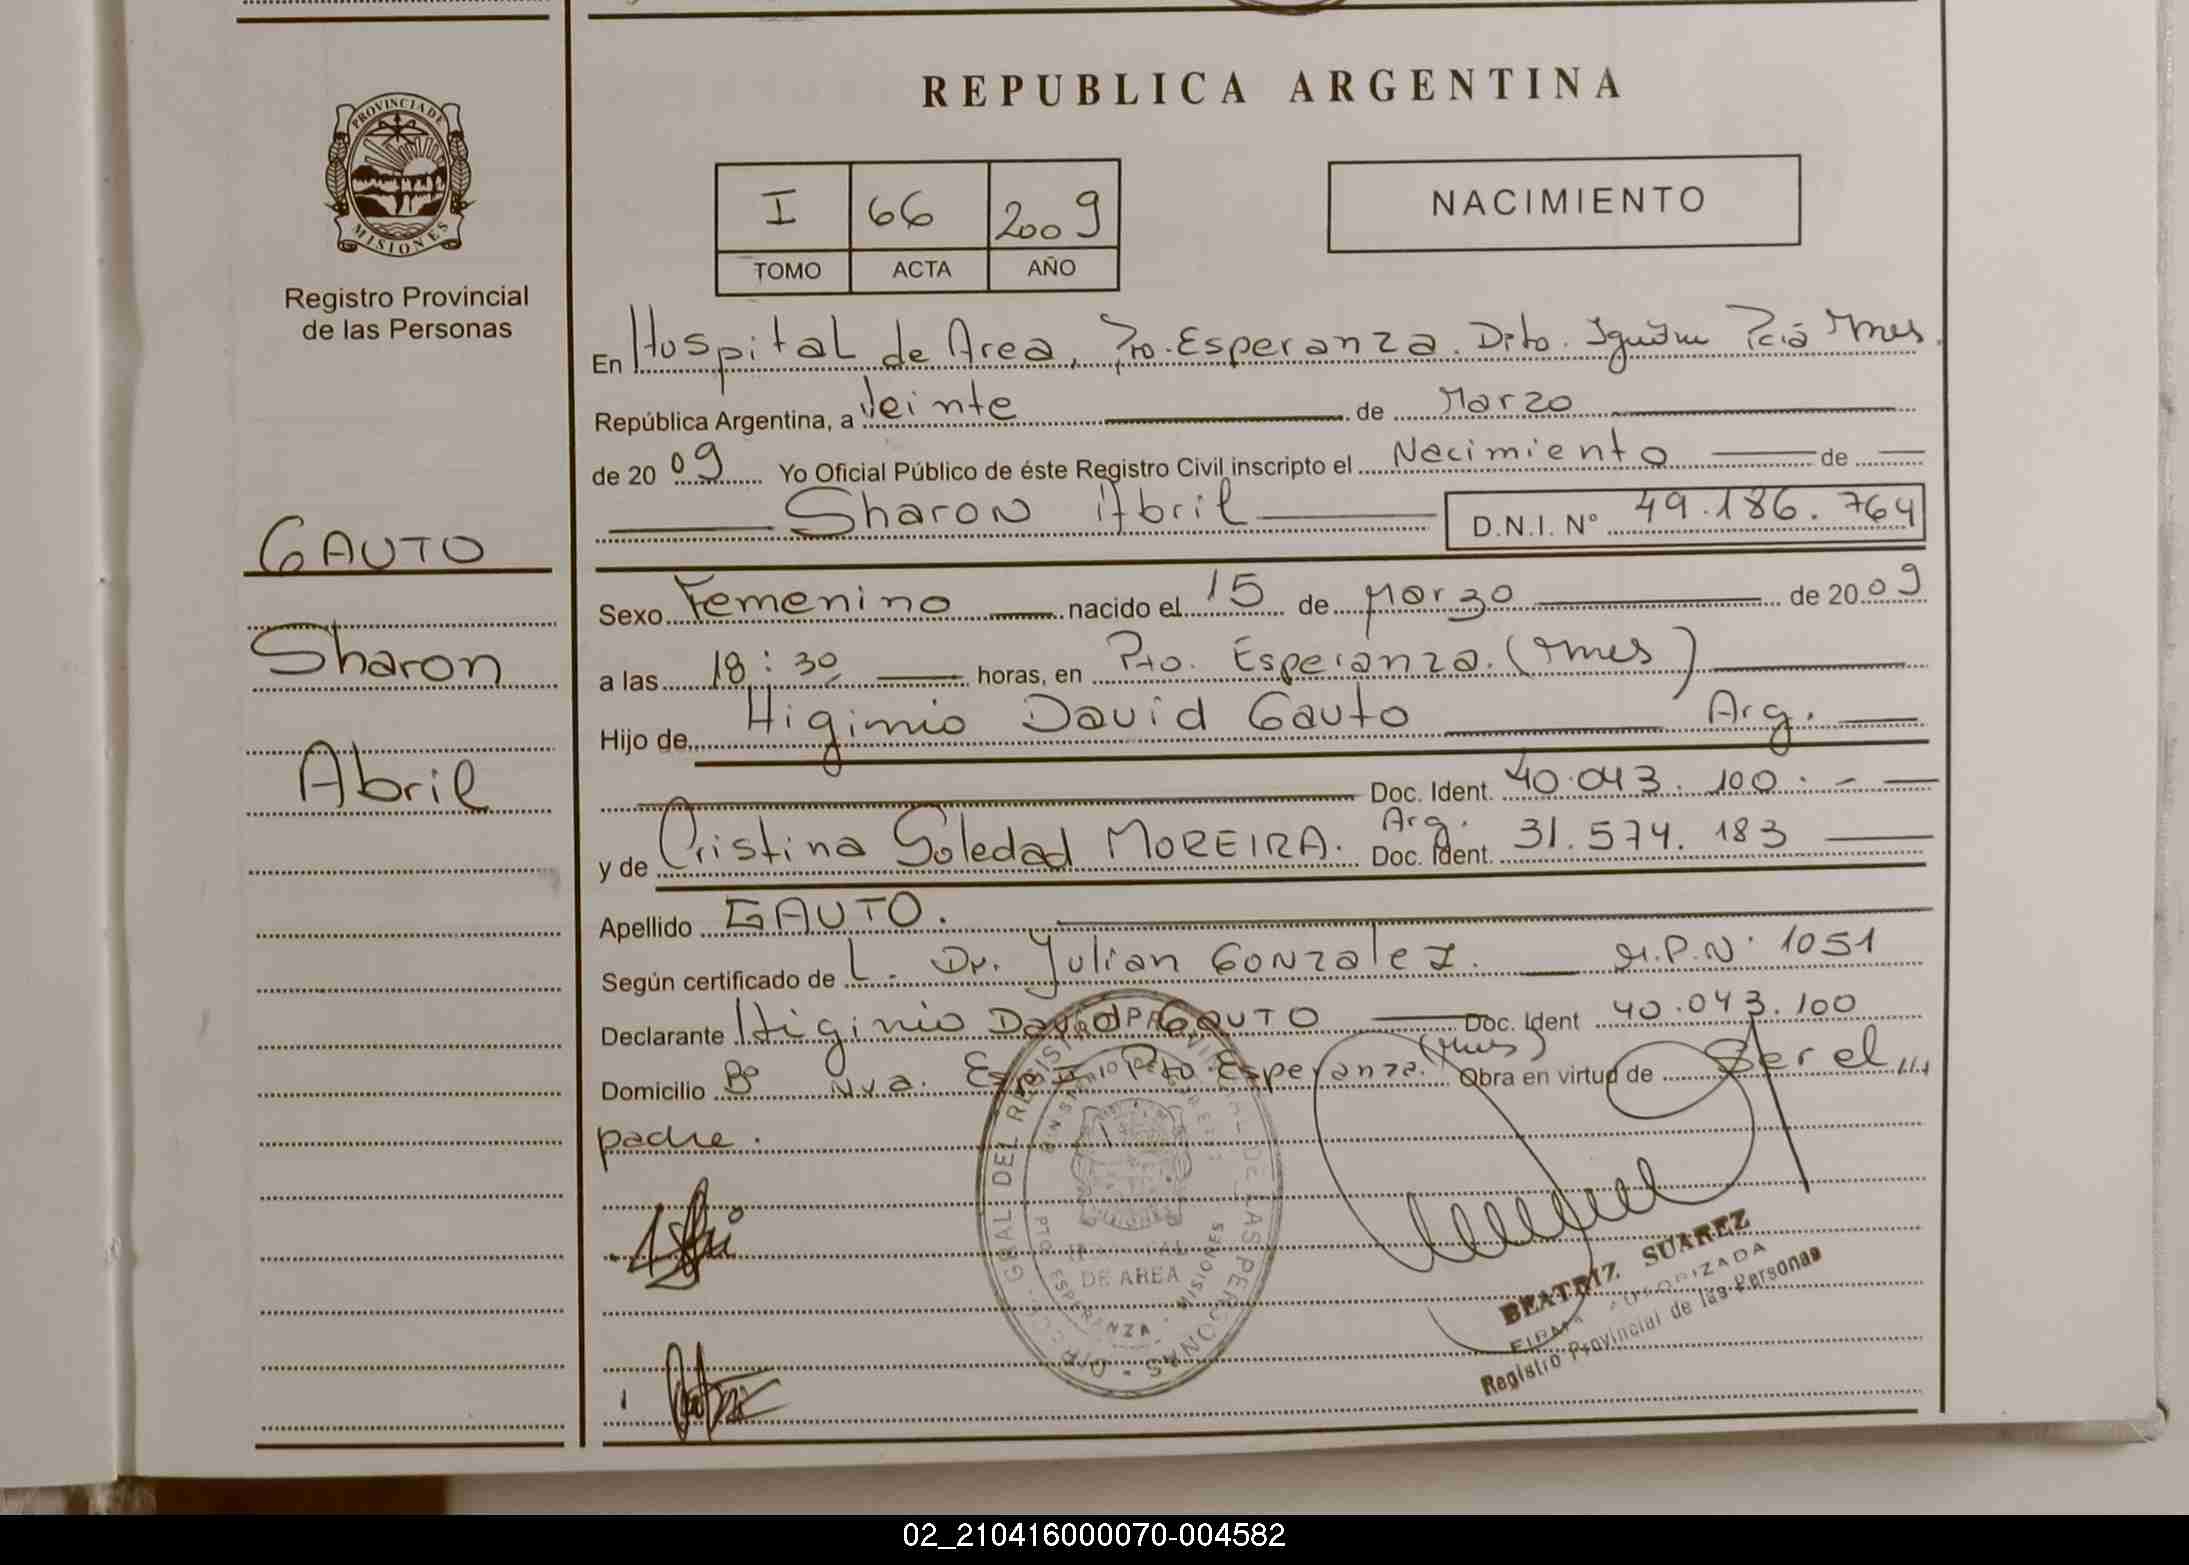 REPUBLICA ARGENTINA
PROVINCIA DE
MISIONES
Registro Provincial
de las Personas
I 66 2009
TOMO ACTA AÑO
NACIMIENTO
GAUTO
Sharon
Abril
En Hospital de Area, Pto. Esperanza. Dpto. Iguazu Pcia Mnes.
República Argentina, a Veinte de Marzo
de 20 09 Yo Oficial Público de éste Registro Civil inscripto el Nacimiento de
Sharon Abril D.N.I. N° 49.186.764
Sexo Femenino nacido el 15 de Marzo de 20 09
a las 18:30 horas, en Pto. Esperanza. (Mnes)
Hijo de Higinio David Gauto Arg.
Doc. Ident. 40.043.100.-
Arg.
y de Cristina Soledad MOREIRA. Doc. Ident. 31.574.183
Apellido GAUTO.
Según certificado de L. Dr. Julian Gonzalez. M.P.N° 1051
Declarante Higinio David GAUTO Doc. Ident 40.043.100
Domicilio B° Nva. Esp. Pto. Esperanza. (Mnes) Obra en virtud de Ser el
padre.
DE AREA
PTO. ESPERANZA - MISIONES
BEATRIZ SUAREZ
FIRMA AUTORIZADA
Registro Provincial de las Personas
02_210416000070-004582